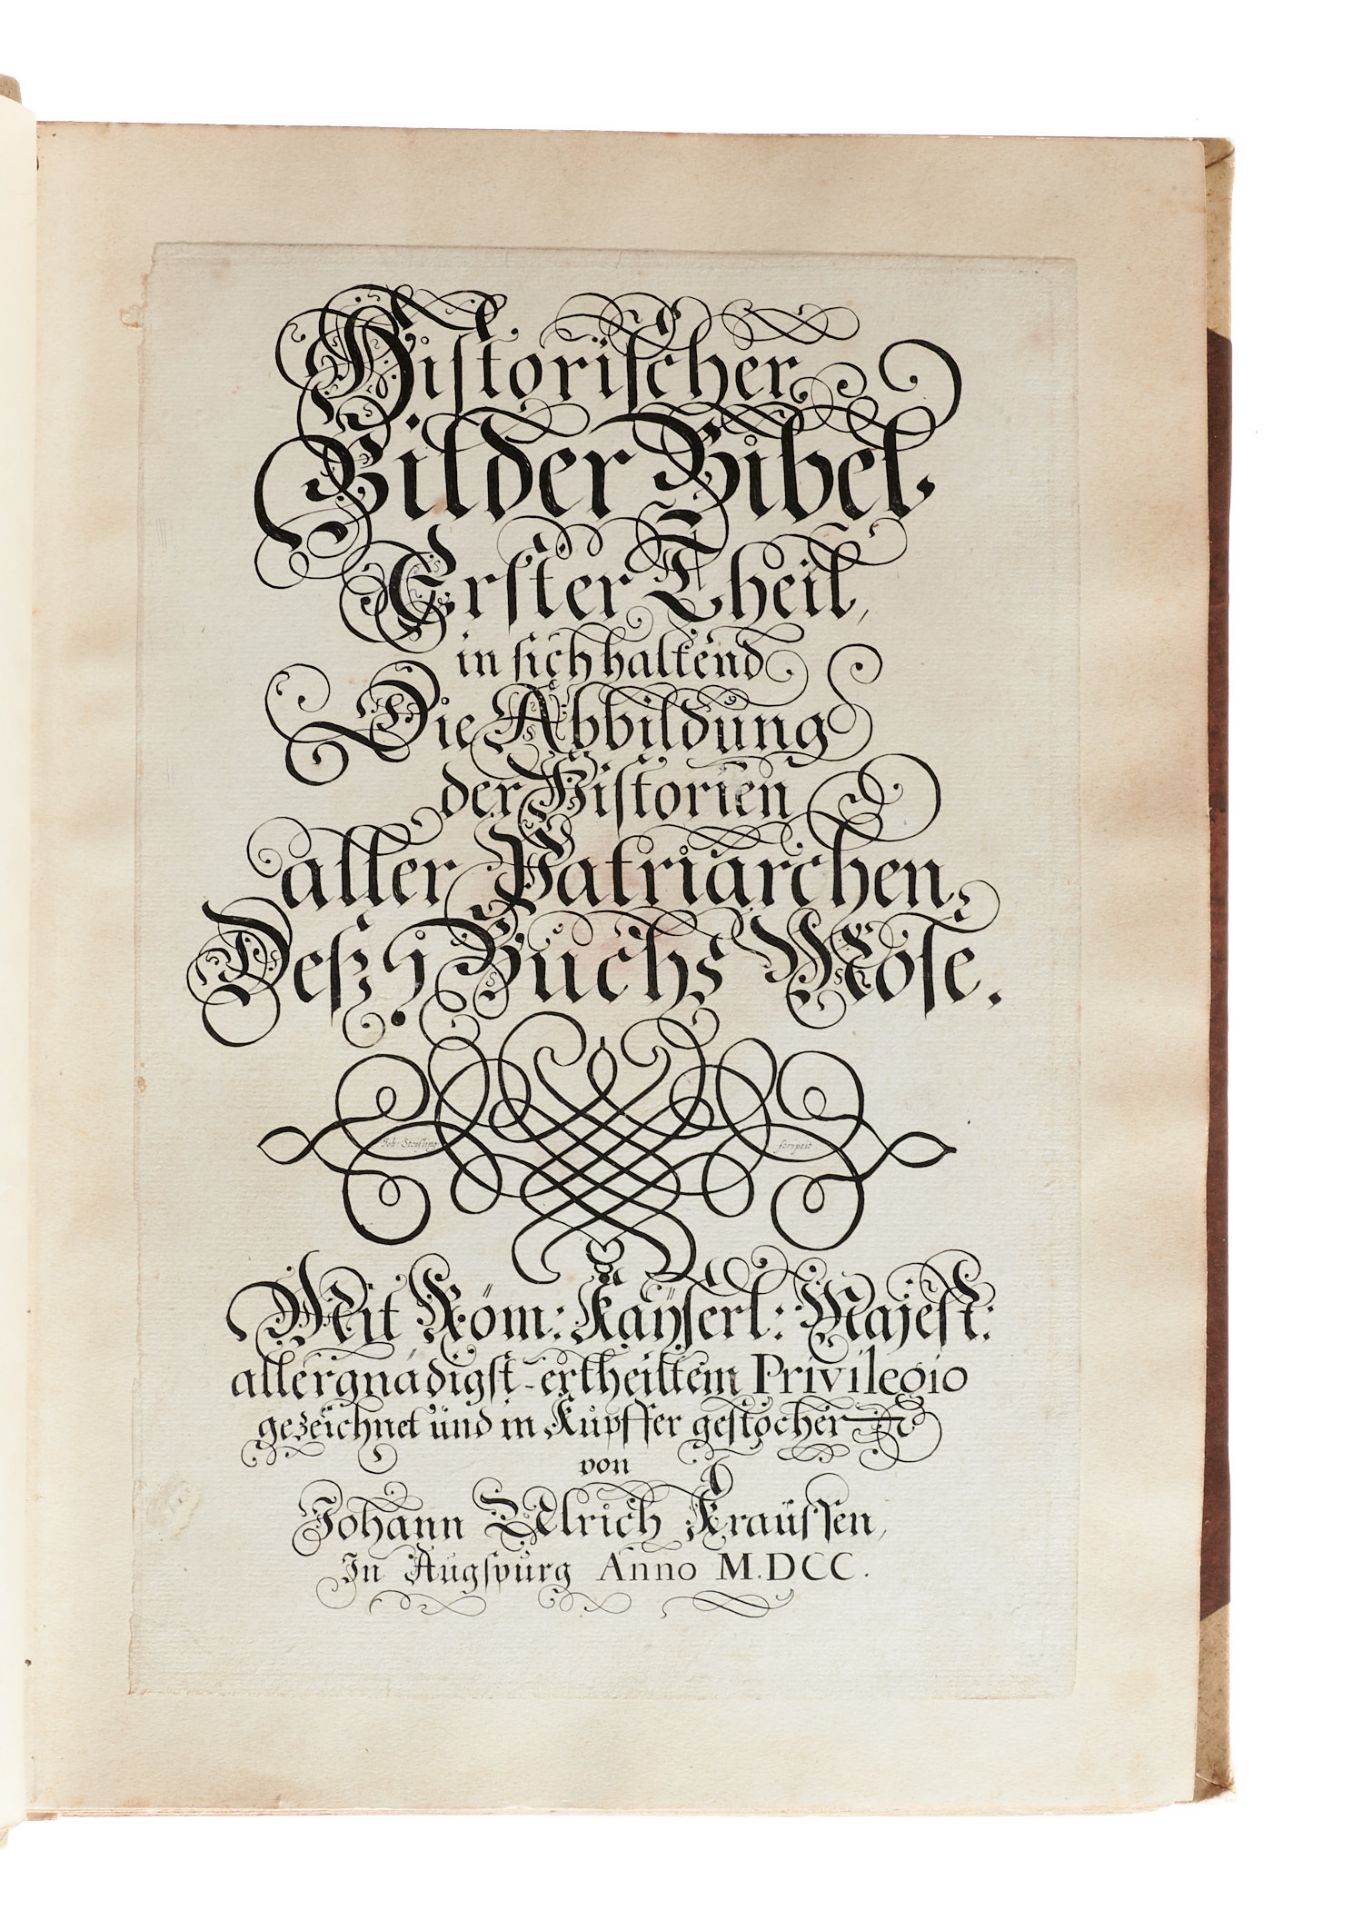 Historischer
Bilder Bibel.
Erster Theil,
in sich haltend
Die Abbildung
der Historien
aller Patriarchen
Deß 1 Buchs Mose.
Joh: scripsit
Mit Röm: Kayserl: Majest:
allergnädigst-ertheiltem Privilegio
gezeichnet und in Kupffer gestochen
von
Johann Ulrich Kraussen,
In Augspurg Anno M.DCC.